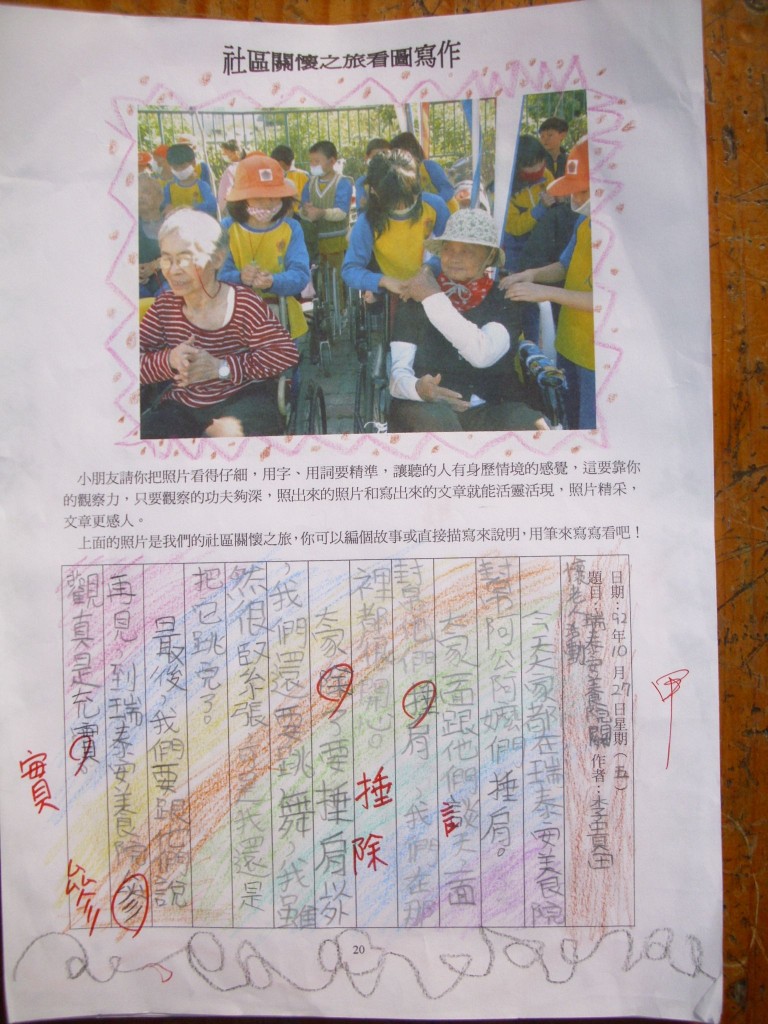 社區關懷之旅看圖寫作
小朋友請你把照片看得仔細，用字、用詞要精準，讓聽的人有身歷情境的感覺，這要靠你
的觀察力，只要觀察的功夫夠深，照出來的照片和寫出來的文章就能活靈活現，照片精采，
文章更感人。
上面的照片是我們的社區關懷之旅，你可以編個故事或直接描寫來說明，用筆來寫寫看吧！
日期：92年10月27日星期（五）
題目：瑞泰安養院關 作者：李
懷老人活動
今天大家都在瑞泰安養院
幫阿公阿嬤們捶肩。
大家一面跟他們談天一面
幫他們捶肩，我們在那
裡都很開心。
大家除了要捶肩以外
，我們還要跳舞，我雖
然很緊張，可是我還是
把它跳完了。
最後，我們要跟他們說
再見，到瑞泰安養院參
觀真是充實。
甲
捶
除
實
參
20